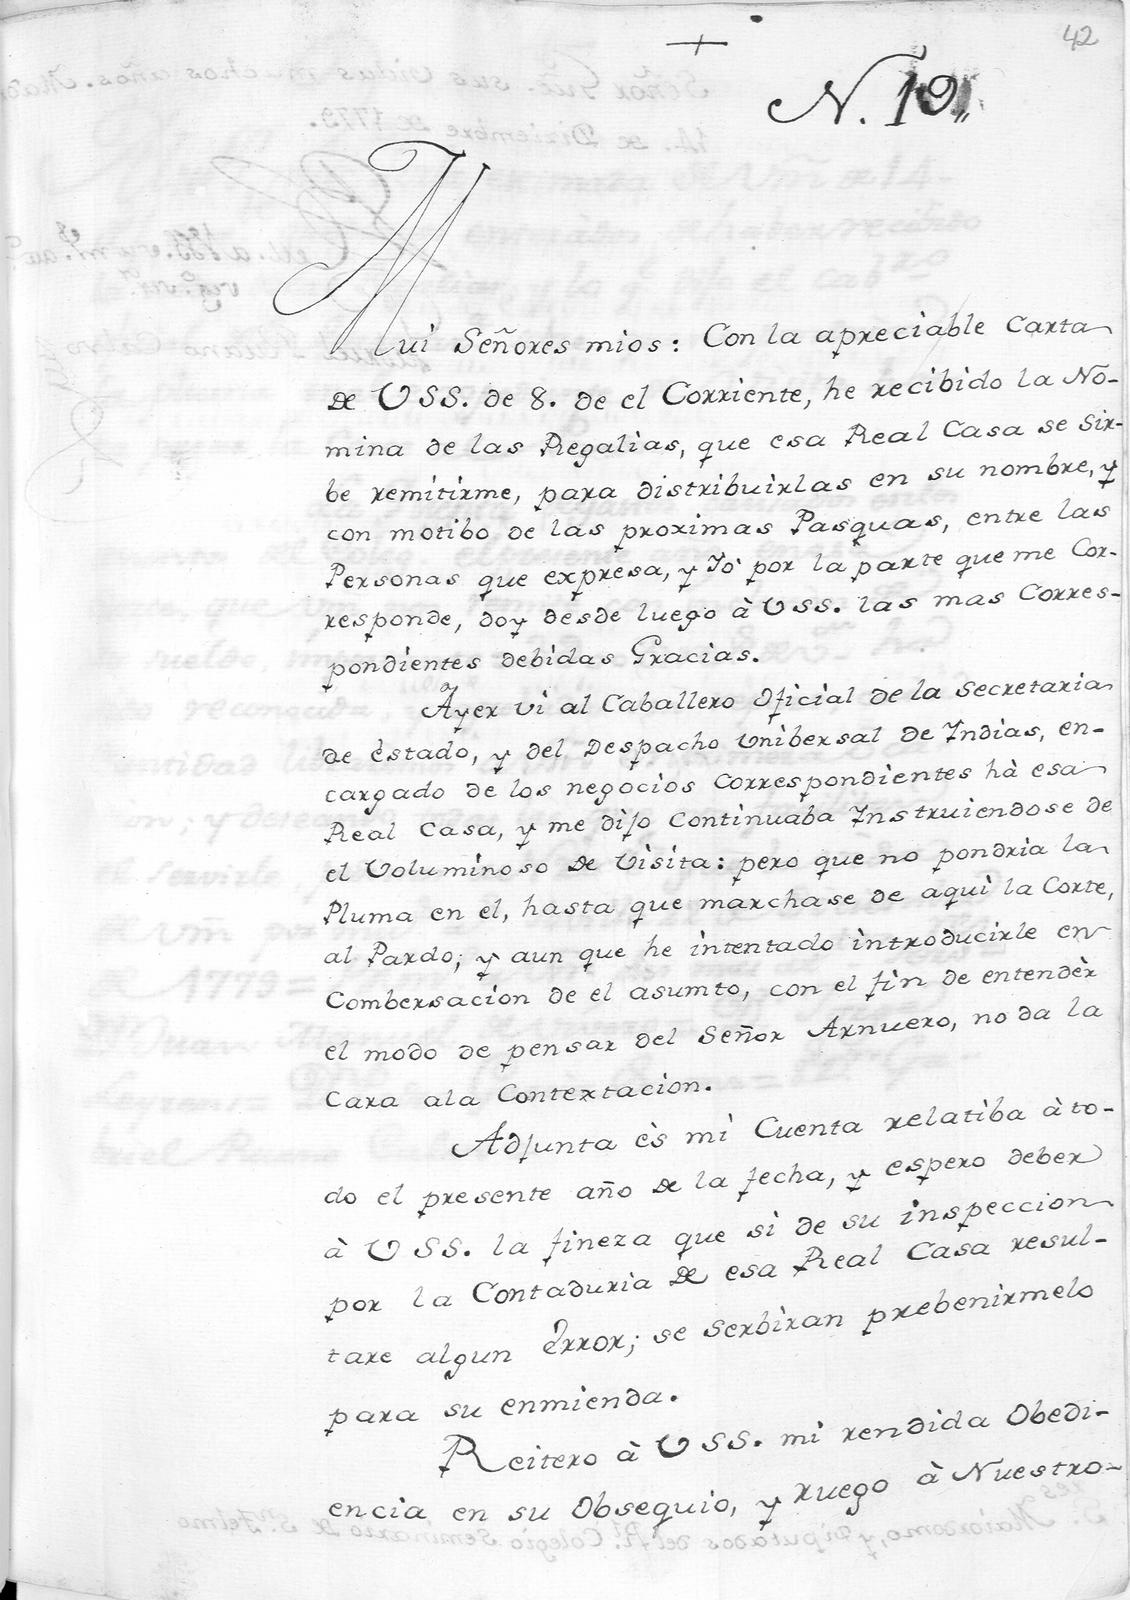 42
N. 19,,
Mui Señores mios: Con la apreciable Carta
de VSS. de 8. de el Corriente, he recibido la No-
mina de las Regalias, que esa Real Casa se Sir-
be remitirme, para distribuirlas en su nombre, y
con motibo de las proximas Pasquas, entre las
Personas que expresa, y Yó por la parte que me Cor-
responde, doy desde luego à VSS. las mas Corres-
pondientes debidas Gracias.
Ayer vi al Caballero Oficial de la Secretaria
de èstado, y del Despacho Unibersal de Indias, en-
cargado de los negocios Correspondientes hà esa
Real Casa, y me dijo Continuaba Instruiendose de
el Voluminoso de Visita: pero que no pondria la
Pluma en el, hasta que marchase de aqui la Corte,
al Pardo; y aun que he intentado introducirle en
Combersacion de el asumto, con el fin de entendèr
el modo de pensar del Señor Arnuero, no da la
Cara ala Contextacion.
Adjunta ès mi Cuenta relatiba à to-
do el presente año de la fecha, y espero deber
à VSS. la fineza que si de su inspeccion
por la Contaduria de esa Real Casa resul-
tare algun Èrror; se serbiran prebenirmelo
para su enmienda.
Reitero à VSS. mi rendida Obedi-
encia en su Obsequio, y ruego à Nuestro